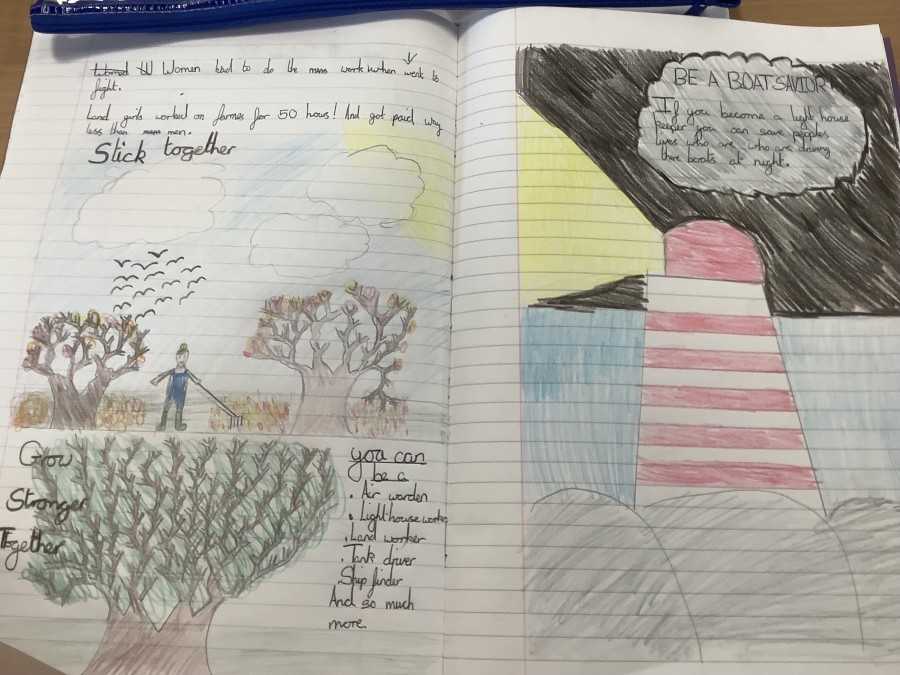 Women had to do the mens work when went to
fight.
Land girls worked on farmes for 50 hours! And got paid way
less than men.
Stick together
Grow
Stronger
Together
you can
be a
. Air warden
. Light house worker
. Land worker
. Tank driver
. Ship finder
And so much
more.
BE A BOAT SAVIOR
If you become a light house
keeper you can save peoples
lives who are who are driving
there boats at night.